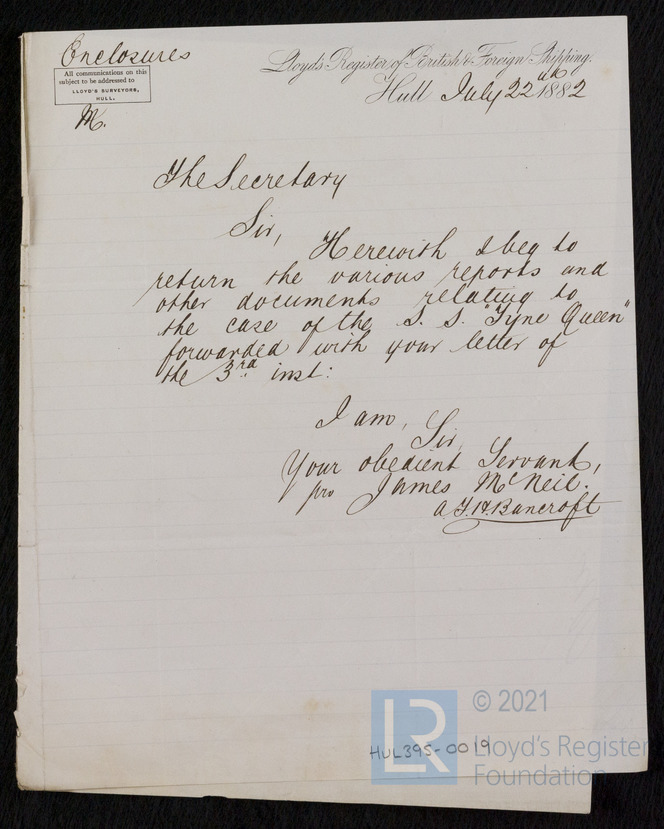 Enclosures
All communications on this
subject to be addressed to
LLOYD'S SURVEYORS,
HULL.
M.
Lloyd's Register of British & Foreign Shipping.
Hull July 22nd 1882
The Secretary
Sir,
Herewith I beg to
return the various reports and
other documents relating to
the case of the S. S. "Tyne Queen"
forwarded with your letter of
the 3rd inst:
I am, Sir,
Your obedient Servant,
pro James McNeil.
A. F. H. Bancroft
HUL395-0019
LR
© 2021
Lloyd's Register
Foundation